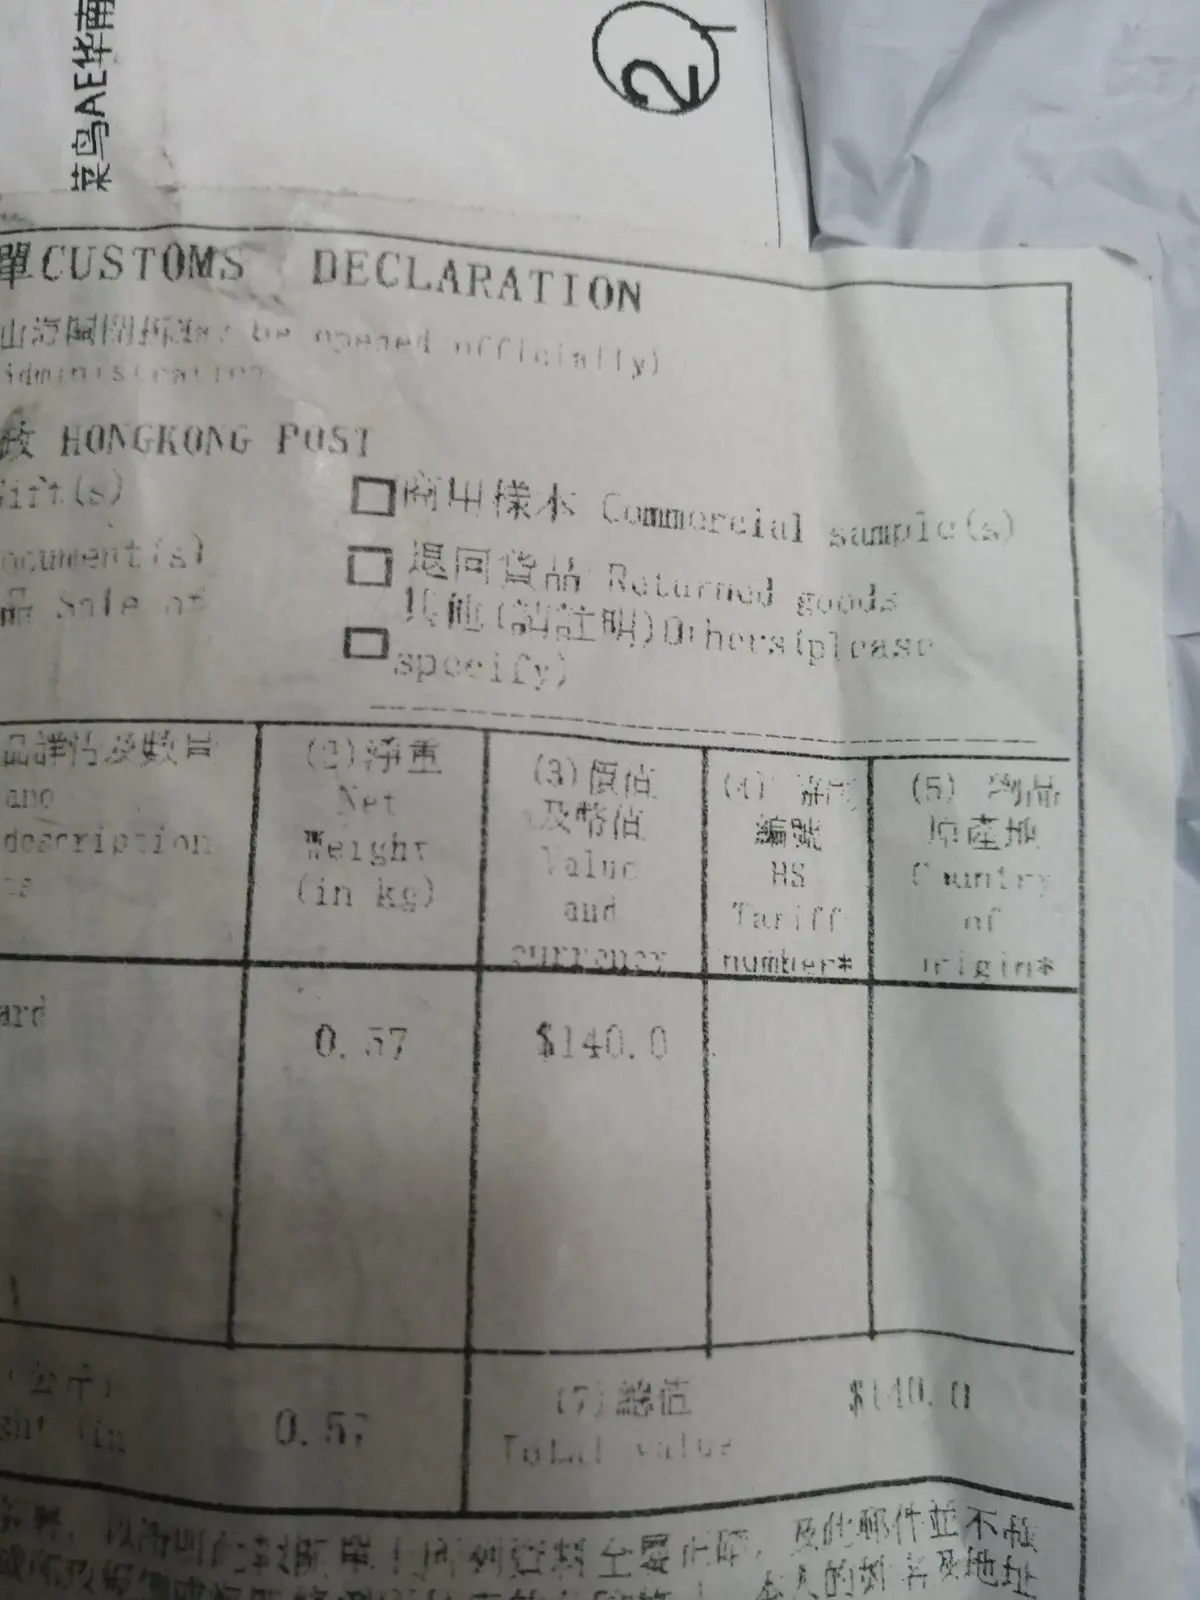 菜鸟AE华南
2
單CUSTOMS DECLARATION
be opened officially)
administration
政 HONGKONG POST
Gift(s)
商用樣本 Commercial sample(s)
ocument(s)
退回貨品 Returned goods
品 Sale of
其他(請註明)Others(please
specify)
品詳情及數量
and
description
(2)淨重
Net
Weight
(in kg)
(3)價值
及幣值
Value
and
currency
(4)
編號
HS
Tariff
number*
(5) 物品
原產地
Country
of
origin*
ard
0.57
$140.0
(公斤)
ght (in
0.57
(7)總值
Total value
$140.0
及此郵件並不
本人的姓名及地址